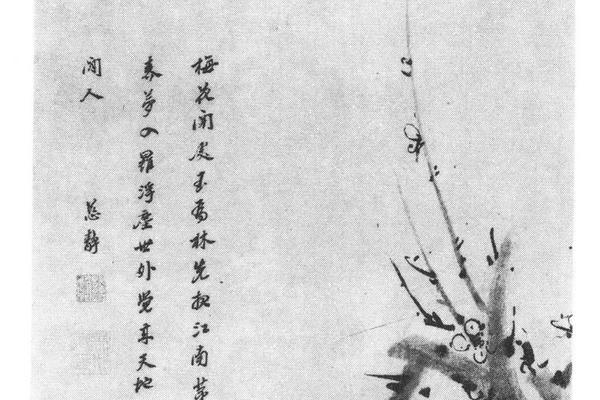 梅花開處玉為林先報江南第
春夢入羅浮塵世外覺來天地
閒人
慈靜